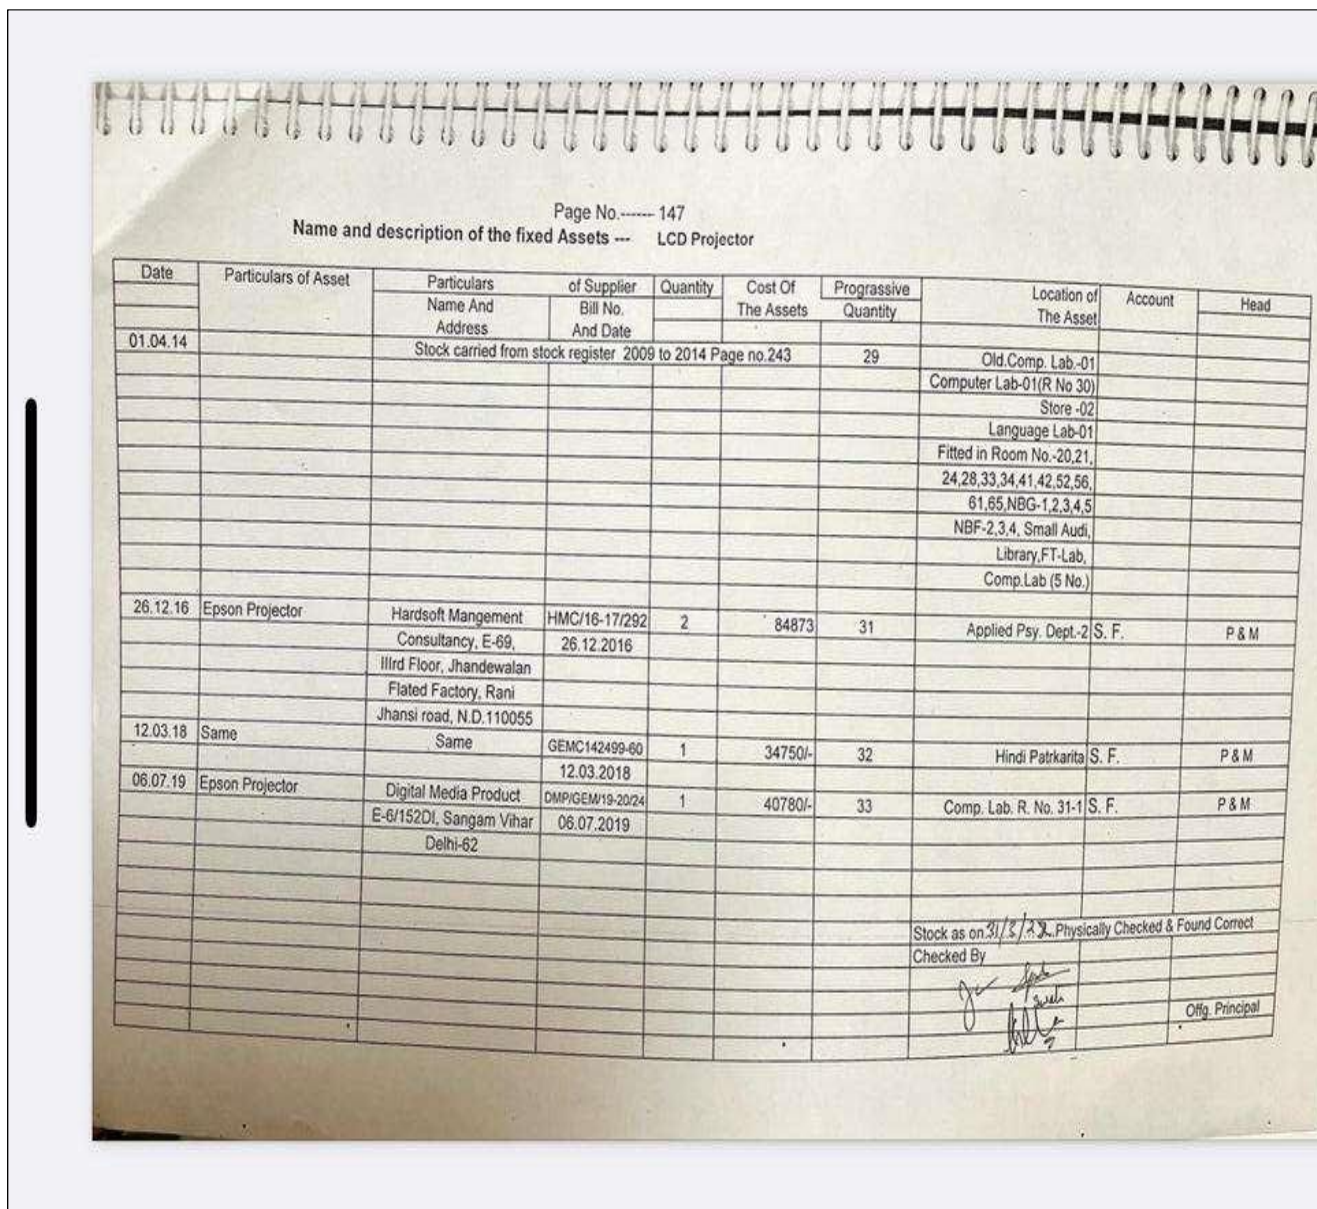 Page No.------ 147
Name and description of the fixed Assets --- LCD Projector
Date Particulars of Asset Particulars of Supplier Quantity Cost Of Prograssive Location of Account Head
Name And Bill No. The Assets Quantity The Asset
Address And Date
01.04.14 Stock carried from stock register 2009 to 2014 Page no.243 29 Old.Comp. Lab.-01
Computer Lab-01(R No 30)
Store -02
Language Lab-01
Fitted in Room No.-20,21,
24,28,33,34,41,42,52,56,
61,65,NBG-1,2,3,4,5
NBF-2,3,4, Small Audi,
Library,FT-Lab,
Comp.Lab (5 No.)
26.12.16 Epson Projector Hardsoft Mangement HMC/16-17/292 2 84873 31 Applied Psy. Dept.-2 S. F. P & M
Consultancy, E-69, 26.12.2016
IIIrd Floor, Jhandewalan
Flated Factory, Rani
Jhansi road, N.D.110055
12.03.18 Same Same GEMC142499-60 1 34750/- 32 Hindi Patrkarita S. F. P & M
12.03.2018
06.07.19 Epson Projector Digital Media Product DMP/GEM/19-20/24 1 40780/- 33 Comp. Lab. R. No. 31-1 S. F. P & M
E-6/152DI, Sangam Vihar 06.07.2019
Delhi-62
Stock as on 31/3/22 Physically Checked & Found Correct
Checked By
Offg. Principal